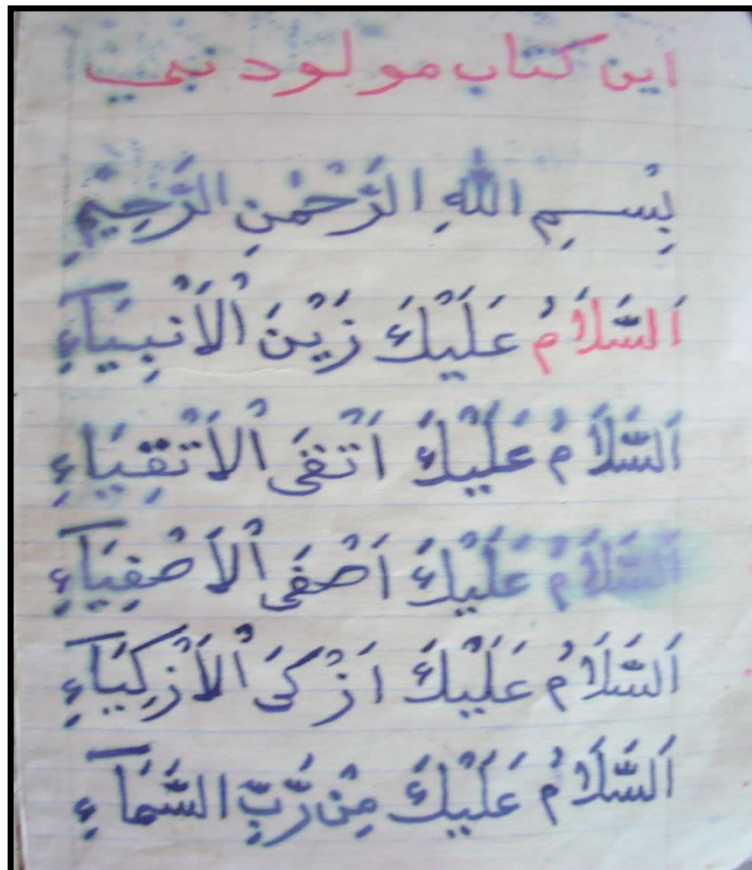 این کتاب مولود نبي
بِسْمِ اللهِ الرَّحْمٰنِ الرَّحِيْمِ
اَلسَّلَامُ عَلَيْكَ زَيْنَ الْاَنْبِيَآءِ
اَلسَّلَامُ عَلَيْكَ اَتْقَى الْاَتْقِيَاءِ
اَلسَّلَامُ عَلَيْكَ اَصْفَى الْاَصْفِيَآءِ
اَلسَّلَامُ عَلَيْكَ اَزْكَى الْاَزْكِيَآءِ
اَلسَّلَامُ عَلَيْكَ مِنْ رَّبِّ السَّمَآءِ